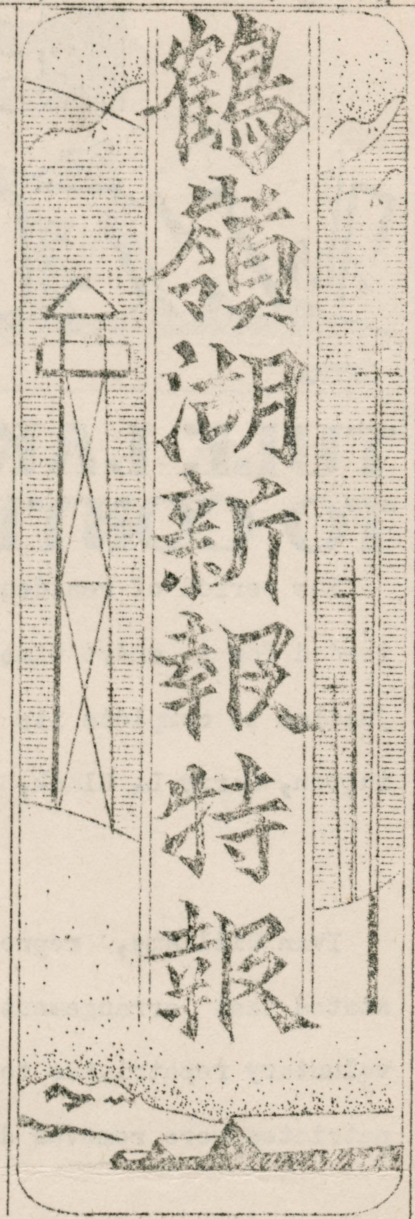 鶴嶺湖新報特報